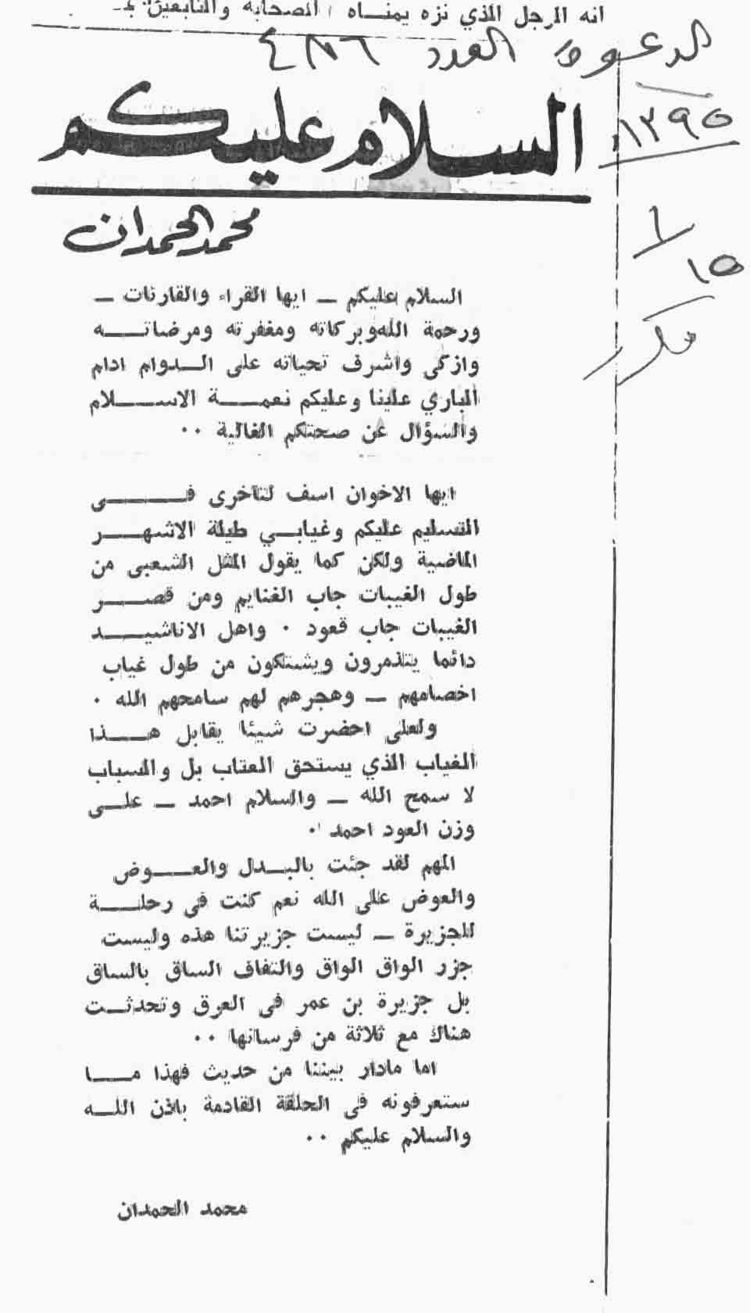 انه الرجل الذي نزه يمناه الصحابة والتابعين
الدعوة العدد
السلام عليكم
١٣٩٥
محمد الحمدان
١٥
مكرر
السلام عليكم ــ ايها القراء والقارئات ــ
ورحمة الله وبركاته ومغفرته ومرضاته
وازكى واشرف تحياته على الدوام ادام
الباري علينا وعليكم نعمة الاسلام
والسؤال عن صحتكم الغالية ٠٠
ايها الاخوان اسف لتاخرى فى
التسليم عليكم وغيابي طيلة الاشهر
الماضية ولكن كما يقول المثل الشعبى من
طول الغيبات جاب الغنايم ومن قصر
الغيبات جاب قعود ٠ واهل الاناشيد
دائما يتذمرون ويشتكون من طول غياب
اخصامهم ــ وهجرهم لهم سامحهم الله ٠
ولعلى احضرت شيئا يقابل هذا
الغياب الذي يستحق العتاب بل والسباب
لا سمح الله ــ والسلام احمد ــ على
وزن العود احمد ٠
المهم لقد جئت بالبدل والعوض
والعوض على الله نعم كنت فى رحلة
للجزيرة ــ ليست جزيرتنا هذه وليست
جزر الواق الواق والتفاف الساق بالساق
بل جزيرة بن عمر فى العرق وتحدثت
هناك مع ثلاثة من فرسانها ٠٠
اما مادار بيننا من حديث فهذا ما
ستعرفونه فى الحلقة القادمة باذن الله
والسلام عليكم ٠٠
محمد الحمدان